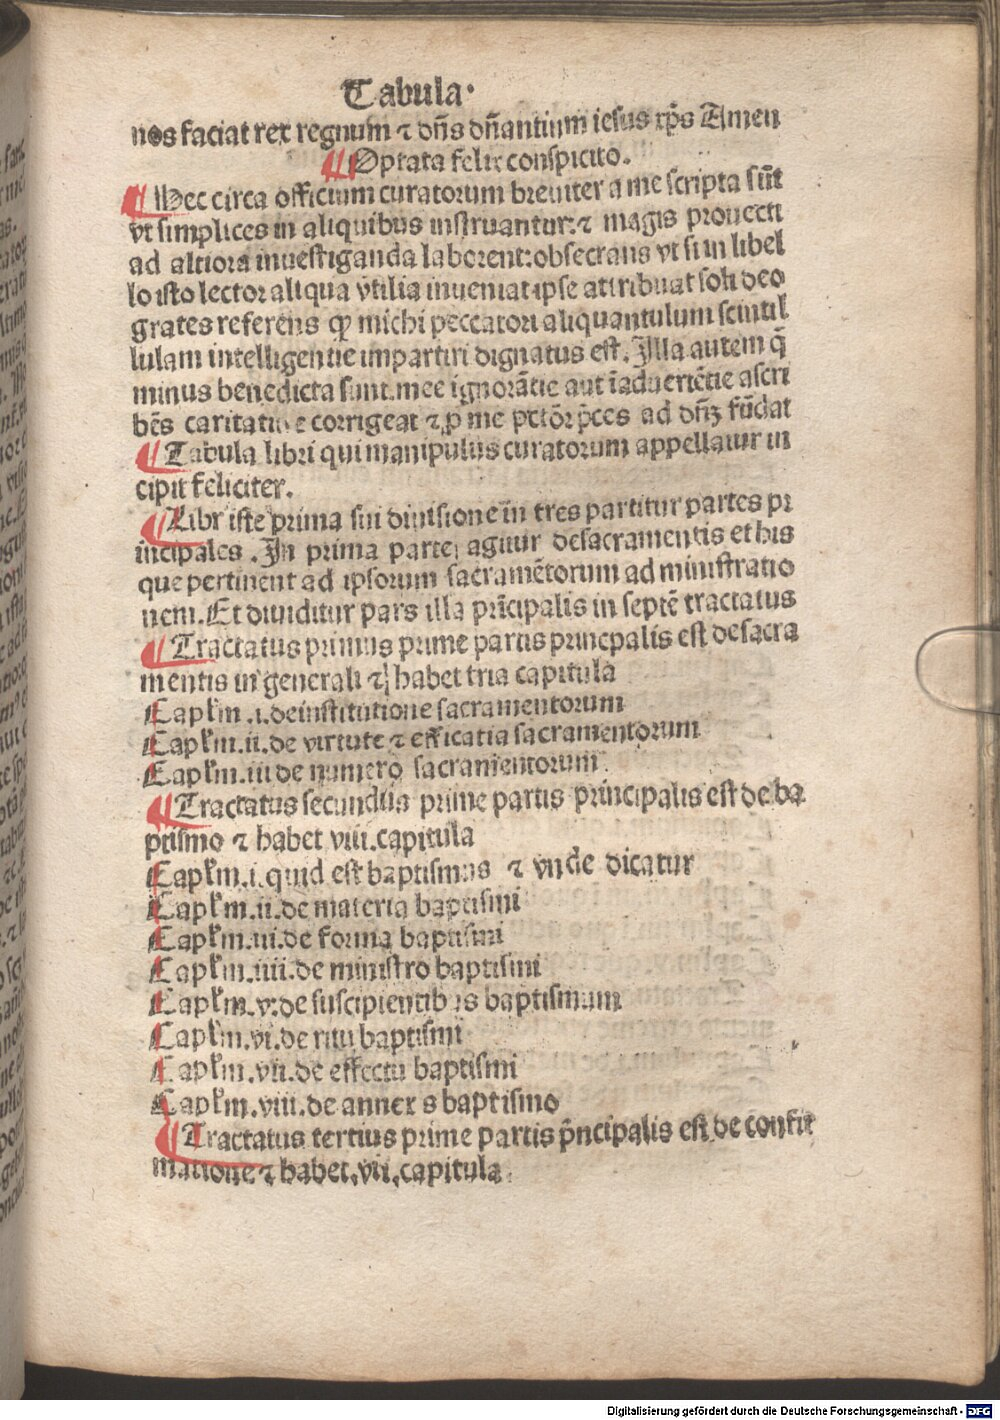 Tabula.
nos faciat rex regnum ⁊ dñs dñantium iesus xp̄s Amen
¶ Optata felix conspicito.
¶ Hec circa officium curatorum breuiter a me scripta sūt
vt simplices in aliquibus instruantur: ⁊ magis prouecti
ad altiora inuestiganda laborent: obsecrans vt si in libel
lo isto lector aliqua vtilia inueniat ipse attribuat soli deo
grates referens qꝫ michi peccatori aliquantulum scintil
lulam intelligentie impartiri dignatus est. Illa autem q̄
minus benedicta sunt. mee ignorātie aut īaduertētie ascri
bēs caritatiue corrigeat ⁊ ꝓ me pctōr p̄ces ad dn̄ꝫ fūdat
¶ Tabula libri qui manipulus curatorum appellatur in
cipit feliciter.
¶ Libr iste prima sui diuisione in tres partitur partes pr
incipales. In prima parte agitur de sacramentis et his
que pertinent ad ipsorum sacramētorum administratio
nem. Et diuiditur pars illa prīcipalis in septē tractatus
¶ Tractatus primus prime partis princpalis est de sacra
mentis in generali ⁊ habet tria capitula
Capl'm .i. de institutione sacramentorum
Capl'm .ii. de virtute ⁊ efficatia sacramentorum
Capl'm .iii de numero sacramentorum
¶ Tractatus secundus prime partis principalis est de ba
ptismo ⁊ habet viii. capitula
Capl'm .i. quid est baptismus ⁊ vnde dicatur
Capl'm .ii. de materia baptismi
Capl'm .iii. de forma baptismi
Capl'm .iiii. de ministro baptismi
Capl'm .v. de suscipientibus baptismum
Capl'm .vi. de ritu baptismi
Capl'm .vii. de effectu baptismi
Capl'm .viii. de annex s baptismo
¶ Tractatus tertius prime partis p̄ncipalis est de confir
matione ⁊ habet .vii. capitula.
Digitalisierung gefördert durch die Deutsche Forschungsgemeinschaft - DFG